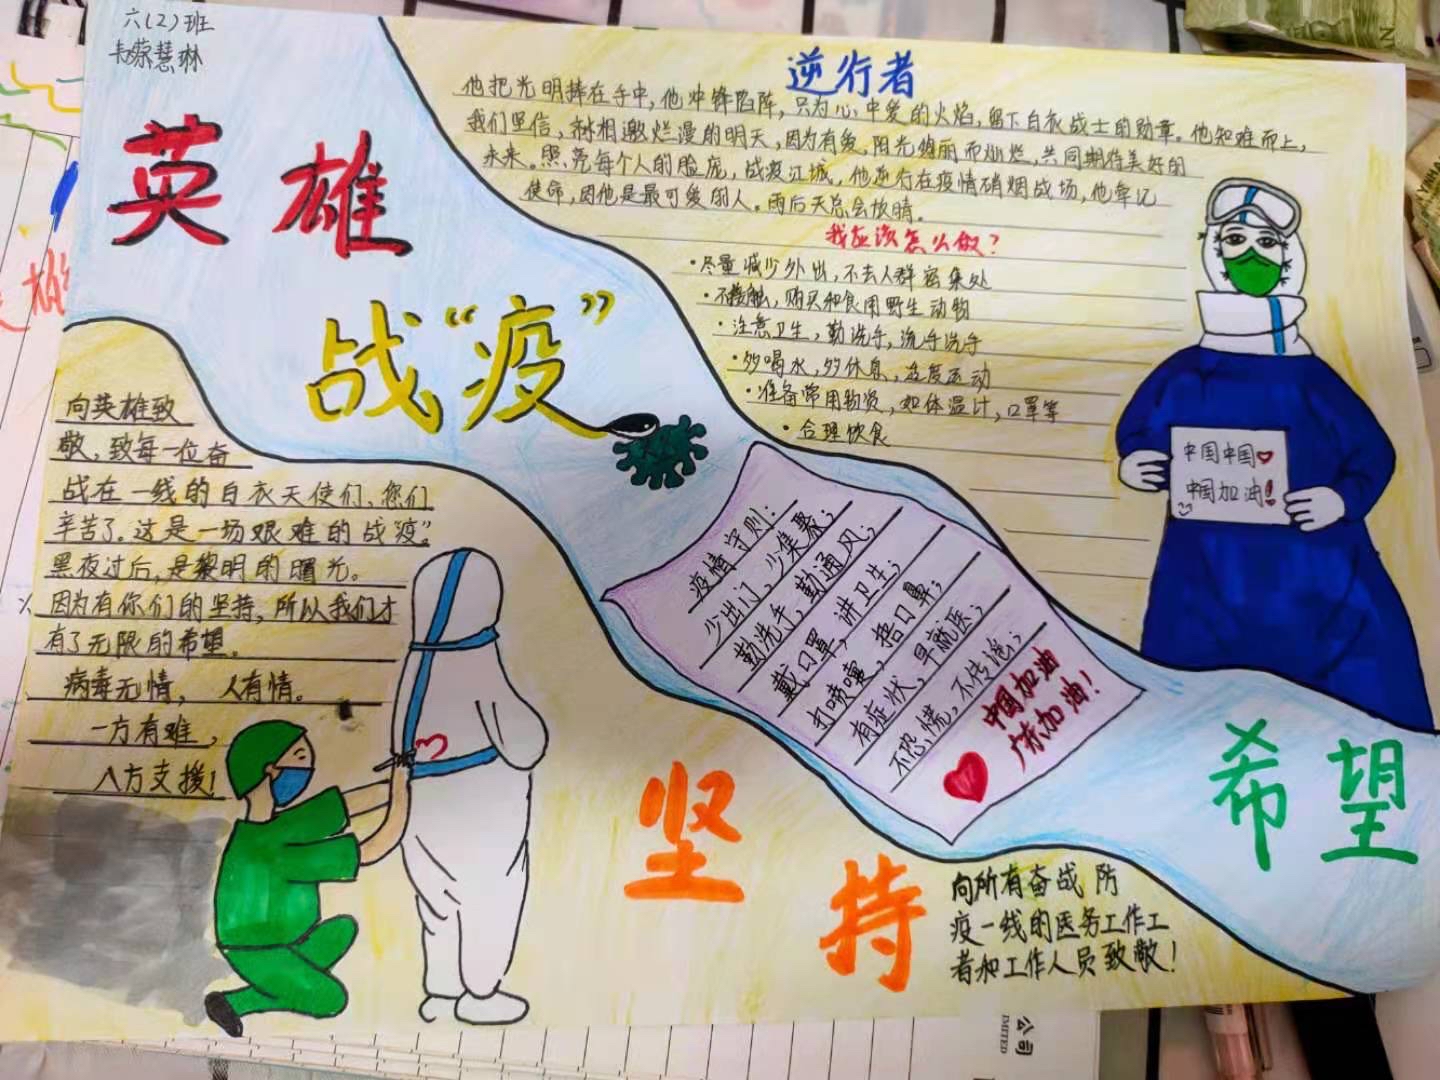 六(2)班
蔡慧琳
英雄
战“疫”
逆行者
他把光明捧在手中,他冲锋陷阵,只为心中爱的火焰,留下白衣战士的勋章。他知难而上,
我们坚信,就相邀烂漫的明天,因为有爱,阳光绚丽而灿烂,共同期待美好的
未来。照亮每个人的脸庞,战疫江城,他逆行在疫情硝烟战场,他牢记
使命,因他是最可爱的人。雨后天总会放晴。
我应该怎么做?
·尽量减少外出,不去人群密集处
·不接触,购买和食用野生动物
·注意卫生,勤洗手,流手洗手
·多喝水,多休息,适度运动
·准备常用物资,如体温计,口罩等
·合理饮食
中国中国
中国加油!
向英雄致
敬,致每一位奋
战在一线的白衣天使们、您们
辛苦了。这是一场艰难的战“疫”。
黑夜过后,是黎明的曙光。
因为有你们的坚持,所以我们才
有了无限的希望。
病毒无情,人有情。
一方有难,
八方支援!
疫情守则:
少出门、少集聚;
勤洗手,勤通风;
戴口罩,讲卫生;
打喷嚏,捂口鼻;
有症状,早就医;
不恐慌,不传谣;
中国加油
广东加油!
坚持
希望
向所有奋战防
疫一线的医务工作工
者和工作人员致敬!
公司